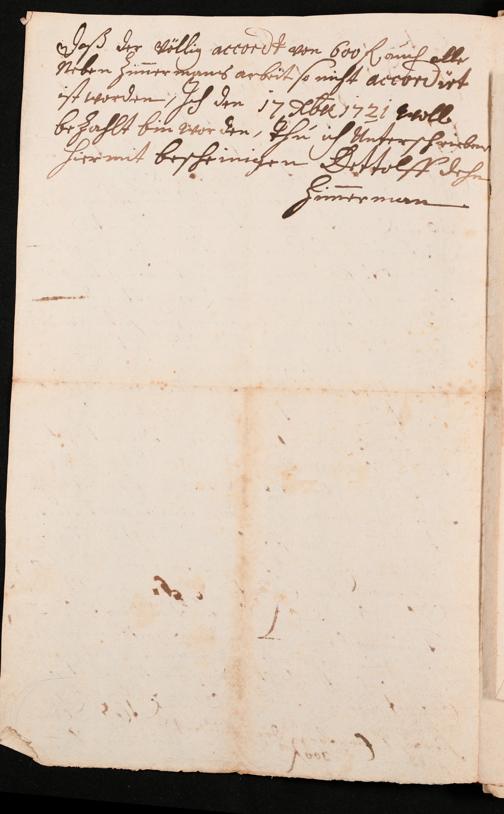 Daß der völlig accordt von 600 ℓ auch alle
Neben Zimmermans arbeit so nicht accordirt
ist worden, Ich den 17 Xbr 1721 woll
bezahlt bin worden, thu ich Unterschrieben
hiermit bescheinigen Dettolff Dehn
Zimmerman